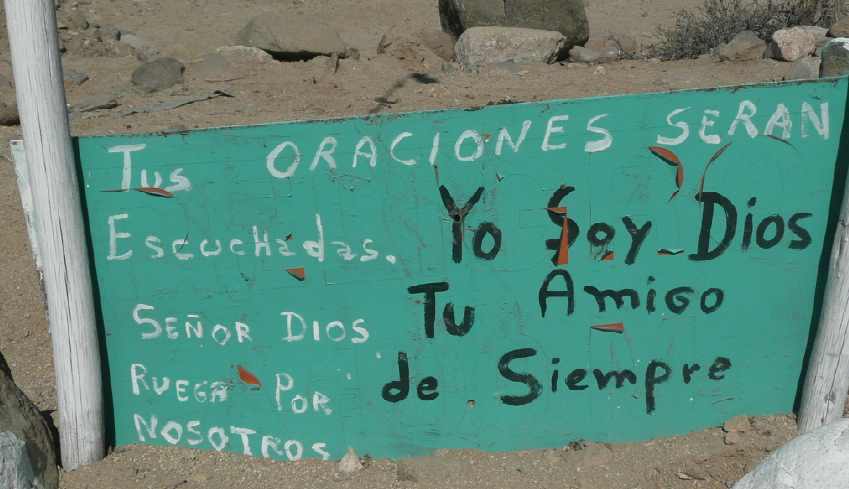 Tus ORACIONES SERAN
Escuchadas.
Yo Soy Dios
Tu Amigo
de Siempre
SEÑOR DIOS
RUEGA POR
NOSOTROS